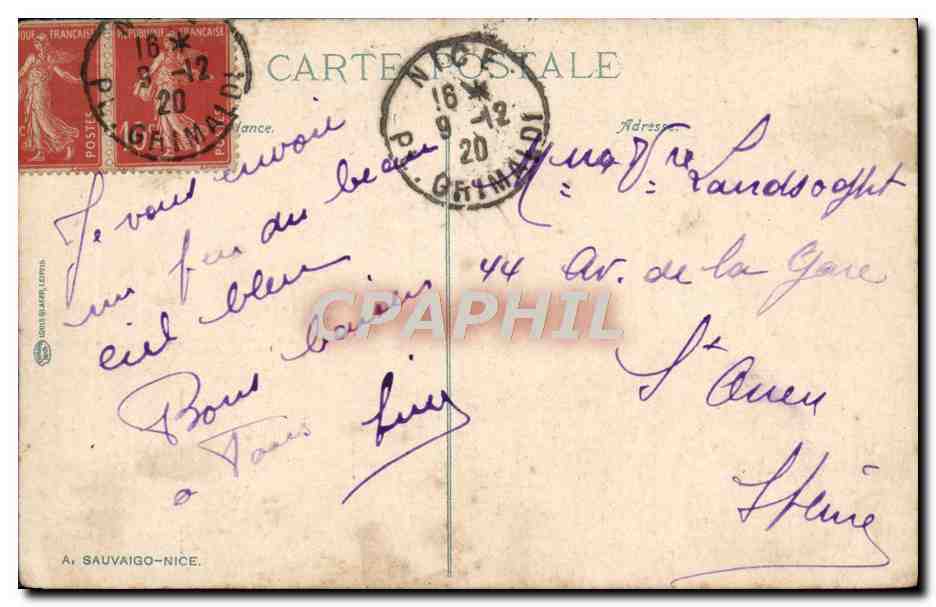 CARTE POSTALE
RÉPUBLIQUE FRANÇAISE
POSTES
NICE
16 *
9 -12
20
PL. GRIMALDI
NICE
16 *
9 -12
20
PL. GRIMALDI
Adresse.
Je vous envoie
un peu du beau
ciel bleu
Bons baisers
a Tous
Mme Vve Landsoght
44 Av. de la Gare
St Ouen
Seine
CPAPHIL
LOUIS GLASER, LEIPZIG.
A. SAUVAIGO-NICE.